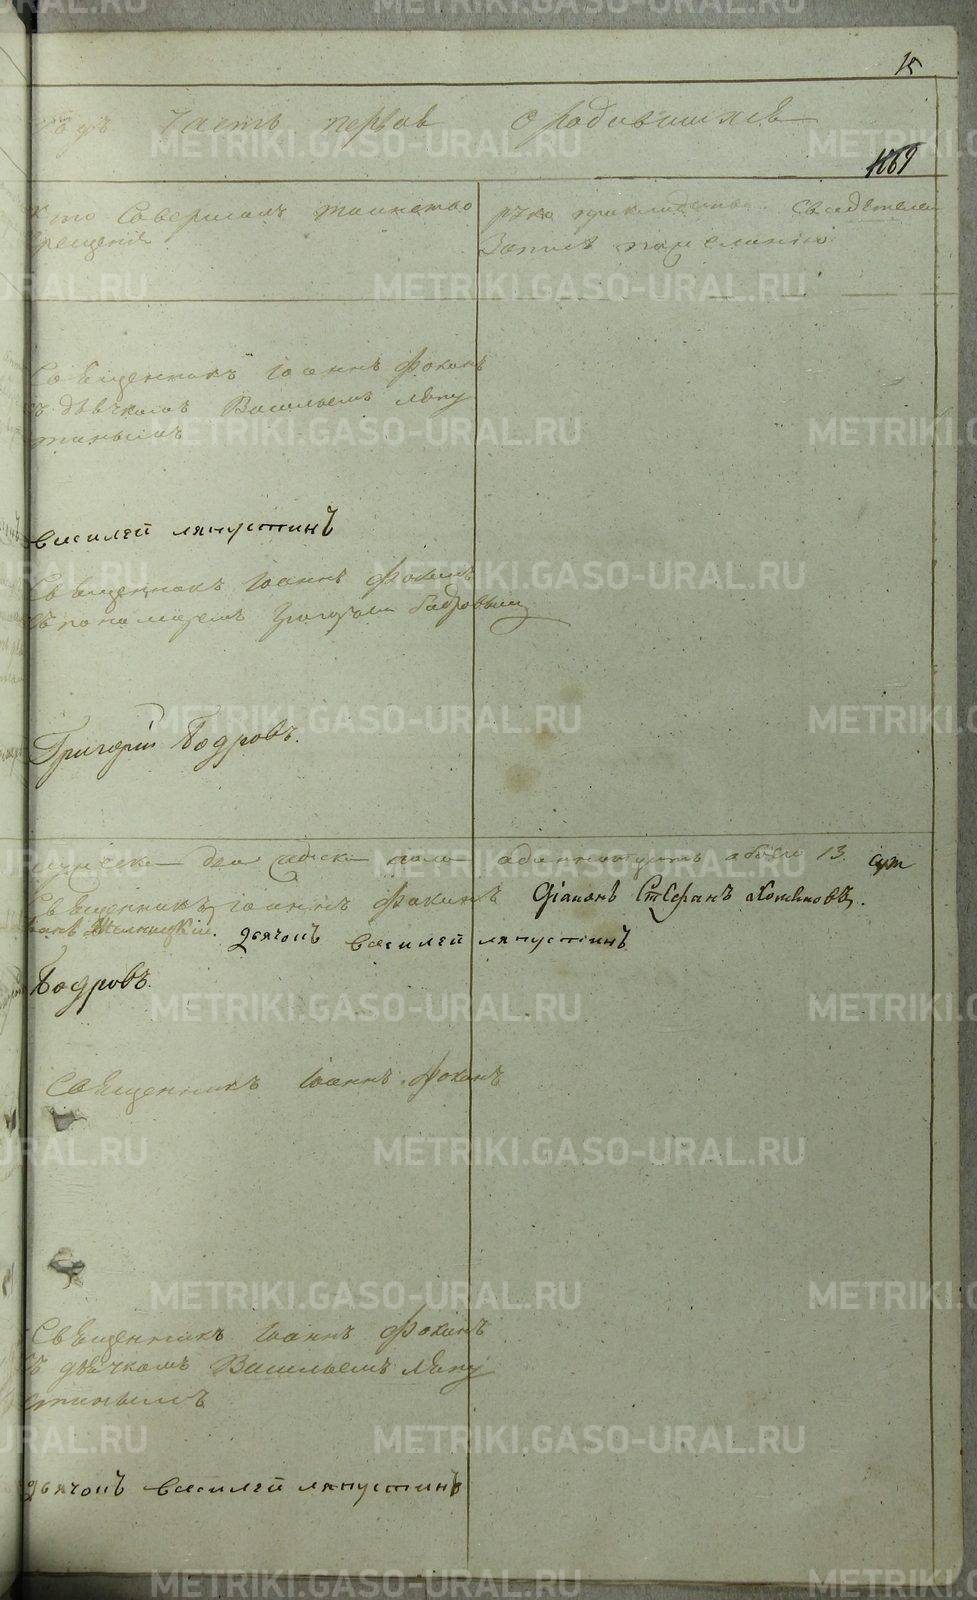 15
годъ часть первая о родившихся
1869
кто совершалъ таинство
крещенія
рукоприкладство свидетелей
записи по желанію
Священникъ Іоаннъ Фокинъ
съ дьячкомъ Васильемъ Ляпу
тинымъ
василей ляпустинъ
Священникъ Іоаннъ Фокинъ
съ пономаремъ Григорьемъ Бодровымъ
Григорій Бодровъ.
мужеска два женска пола одиннатцать обоего 13
Священникъ Іоаннъ Фокинъ Діаконъ Стефанъ
дьячокъ василей ляпустинъ
Бодровъ.
Священникъ Іоаннъ Фокинъ
Священникъ Іоаннъ Фокинъ
съ дьячкомъ Васильемъ Ляпу
стинымъ
дьячокъ василей ляпустинъ
METRIKI.GASO-URAL.RU